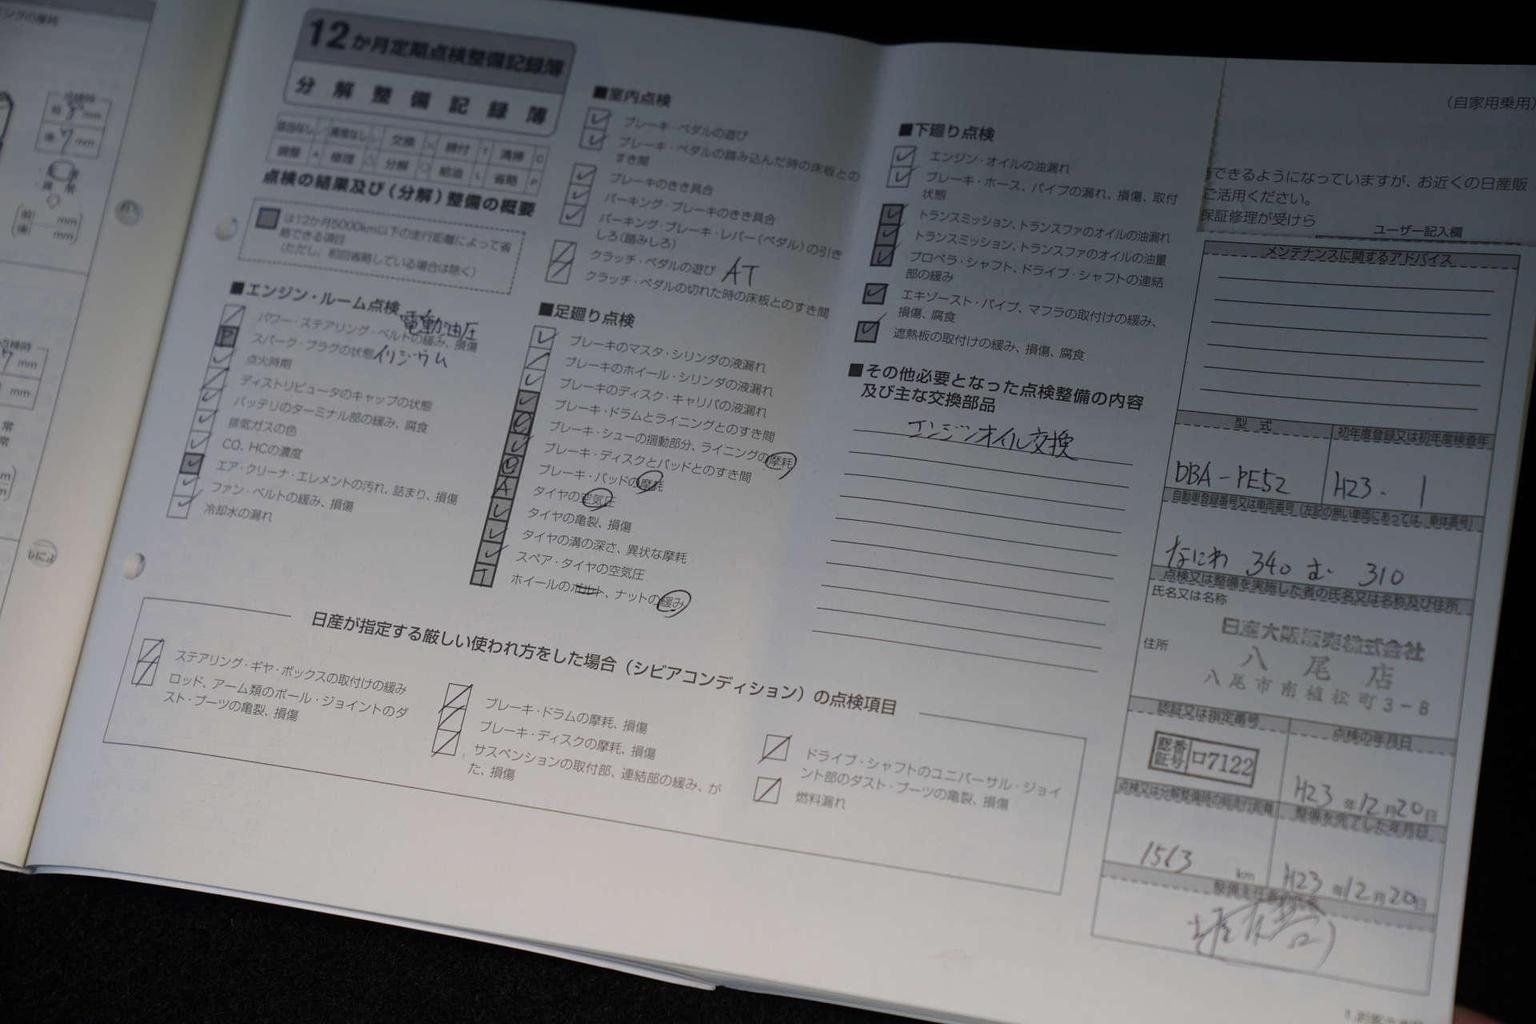 12か月定期点検整備記録簿
分解整備記録簿
交換
締付 T
清掃 C
調整 A
修理
分解
給油 L
省略 P
点検の結果及び(分解)整備の概要
は12か月5000km以下の走行距離によって省
略できる項目
(ただし、前回省略している場合は除く)
■エンジン・ルーム点検
パワー・ステアリング・ベルトの緩み、損傷 電動油圧
スパーク・プラグの状態 イリジウム
点火時期
ディストリビュータのキャップの状態
バッテリのターミナル部の緩み、腐食
排気ガスの色
CO、HCの濃度
エア・クリーナ・エレメントの汚れ、詰まり、損傷
ファン・ベルトの緩み、損傷
冷却水の漏れ
■室内点検
ブレーキ・ペダルの遊び
ブレーキ・ペダルの踏み込んだ時の床板との
すき間
ブレーキのきき具合
パーキング・ブレーキのきき具合
パーキング・ブレーキ・レバー(ペダル)の引き
しろ(踏みしろ)
クラッチ・ペダルの遊び AT
クラッチ・ペダルの切れた時の床板とのすき間
■足廻り点検
ブレーキのマスタ・シリンダの液漏れ
ブレーキのホイール・シリンダの液漏れ
ブレーキのディスク・キャリパの液漏れ
ブレーキ・ドラムとライニングとのすき間
ブレーキ・シューの摺動部分、ライニングの摩耗
ブレーキ・ディスクとパッドとのすき間
ブレーキ・パッドの摩耗
タイヤの空気圧
タイヤの亀裂、損傷
タイヤの溝の深さ、異状な摩耗
スペア・タイヤの空気圧
ホイールのボルト、ナットの緩み
■下廻り点検
エンジン・オイルの油漏れ
ブレーキ・ホース、パイプの漏れ、損傷、取付
状態
トランスミッション、トランスファのオイルの油漏れ
トランスミッション、トランスファのオイルの油量
プロペラ・シャフト、ドライブ・シャフトの連結
部の緩み
エキゾースト・パイプ、マフラの取付けの緩み、
損傷、腐食
遮熱板の取付けの緩み、損傷、腐食
■その他必要となった点検整備の内容
及び主な交換部品
エンジンオイル交換
日産が指定する厳しい使われ方をした場合(シビアコンディション)の点検項目
ステアリング・ギヤ・ボックスの取付けの緩み
ロッド、アーム類のボール・ジョイントのダ
スト・ブーツの亀裂、損傷
ブレーキ・ドラムの摩耗、損傷
ブレーキ・ディスクの摩耗、損傷
サスペンションの取付部、連結部の緩み、が
た、損傷
ドライブ・シャフトのユニバーサル・ジョイ
ント部のダスト・ブーツの亀裂、損傷
燃料漏れ
(自家用乗用)
できるようになっていますが、お近くの日産販
ご活用ください。
保証修理が受けら
ユーザー記入欄
メンテナンスに関するアドバイス
型式
初年度登録又は初年度検査年
DBA-PE52
H23. 1
自動車登録番号又は車両番号(左記の無い車両にあっては、車体番号)
なにわ 340 む 310
点検又は整備を実施した者の氏名又は名称及び住所
氏名又は名称
日産大阪販売株式会社
住所
八尾店
八尾市南植松町3-8
認証又は指定番号
点検の年月日
認証番号 ロ7122
H23 年12月20日
点検又は分解整備時の総走行距離
整備を完了した年月日
1563 km
H23 年12月20日